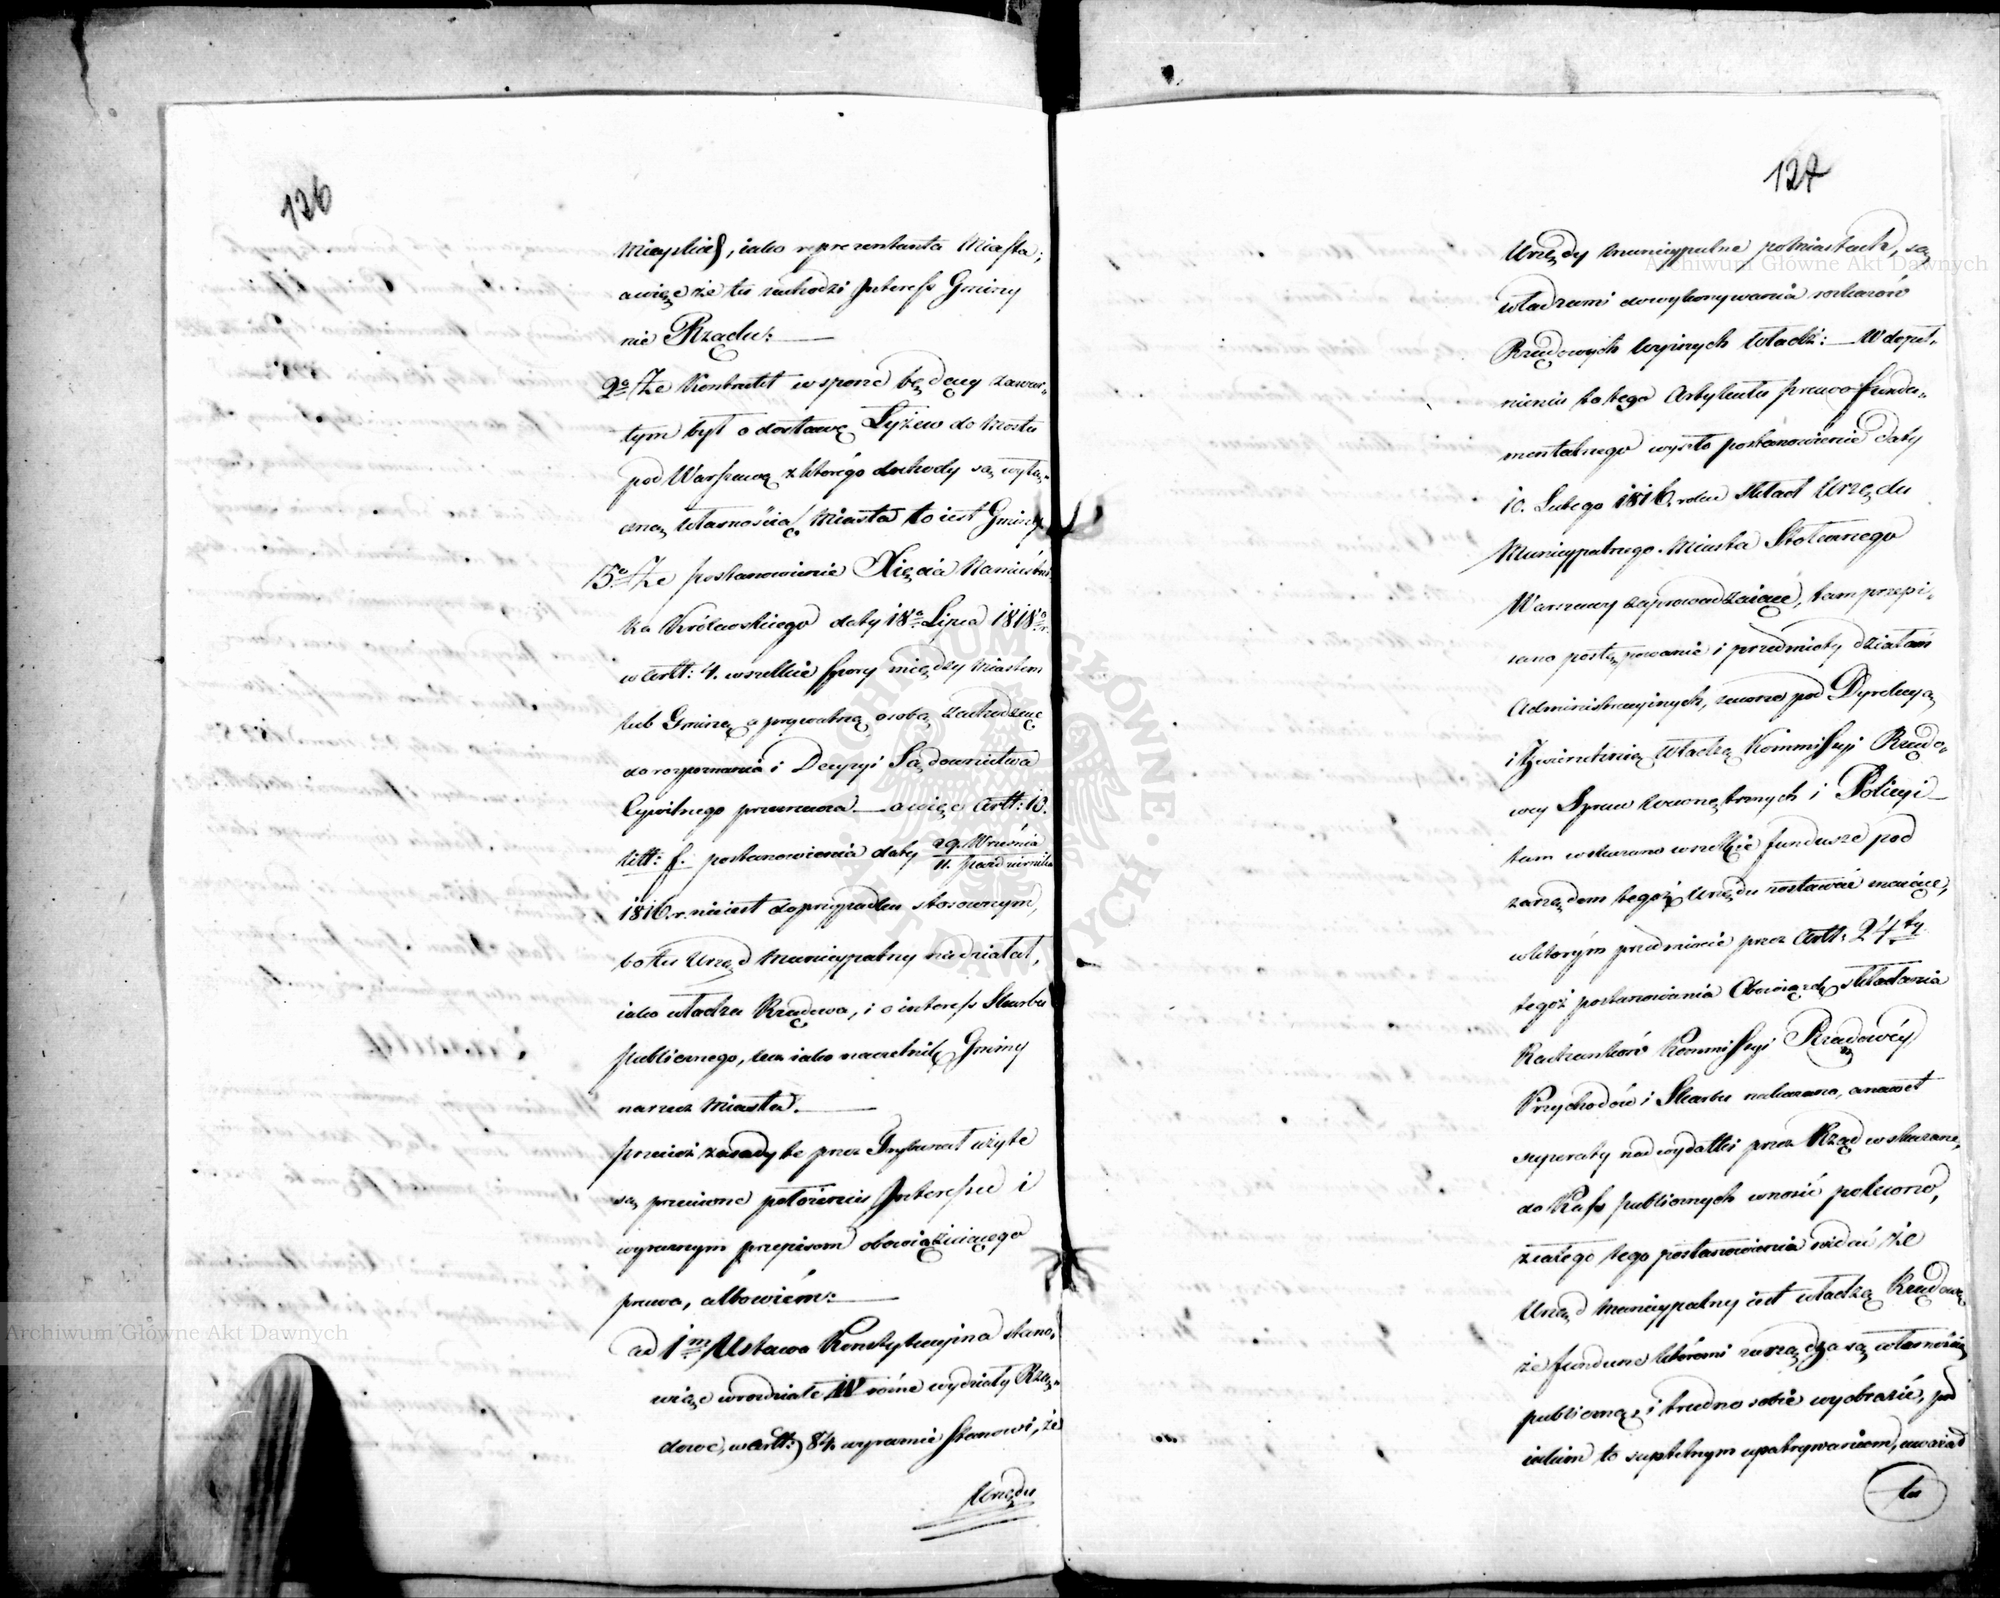 126
Mieyskich, iako reprezentanta Miasta;
a więc że tu zachodzi Interess Gminy
nie Rządu:
2o Że Kontrakt w sporze będący zawar-
tym był o dostawę Łyżew do Mostu
pod Warszawą z którego dochody są wyłą-
czną własnością Miasta to iest Gminy
3o Że postanowienie Xięcia Namiestni-
ka Królewskiego daty 18o Lipca 1818o r.
w Artt: 4. wszelkie spory między Miastem
lub Gminą a prywatną osobą zachodzące
do rozpoznania i Decyzyi Sądownictwa
Cywilnego przeznacza — a więc Artt: 10.
litt: f. postanowienia daty 29. Września
11. Października
1816. r. nie iest do przypadku stosownym,
bo tu Urząd Municypalny nie działał,
iako władza Rządowa, i o interess Skarbu
publicznego, lecz iako naczelnik Gminy
na rzecz Miasta.
Przecież zasady te przez Trybunał użyte
są przeciwne położeniu Interessu i
wyraznym przepisom obowiązuiącego
prawa, albowiem:
ad 1m Ustawa Konstytucyina stano-
wiąc w rozdziale IV różne wydziały Rzą-
dowe, w artt: 84. wyraznie stanowi, że
Urzędy
127
Urzędy municypalne po Miastach, są
władzami do wykonywania rozkazów
Rządowych wyższych Władz: — W dopeł-
nieniu to tego Artykułu prawa funda-
mentalnego wyszło postanowienie daty
10. Lutego 1816. roku skład Urzędu
Municypalnego Miasta Stołecznego
Warszawy zaprowadzaiące, tam przepi-
sano postępowanie i przedmioty działań
Administracyinych, zawsze pod Dyrekcyą
i Zwierzchnią Władzą Kommissyi Rządo-
wey Spraw Wewnętrznych i Policyi —
tam wskazano wszelkie fundusze pod
zarządem tegoż Urzędu zostawać maiące,
w którym przedmiocie przez Artt: 24ty
tegoż postanowienia Obowiązek składania
Rachunków Kommissyi Rządowéy
Przychodów i Skarbu nakazano, a nawet
superaty nad wydatki przez Rząd wskazane,
do Kass publicznych wnosić polecono,
z całego tego postanowienia widać że
Urząd Municypalny iest władzą Rządową
że fundusze któremi zarządza są własnością
publiczną, i trudno sobie wyobrazić, pod
iakim to subtelnym upatrywaniem, uważać
tu
Archiwum Główne Akt Dawnych
Archiwum Główne Akt Dawnych
ARCHIWUM GŁÓWNE AKT DAWNYCH